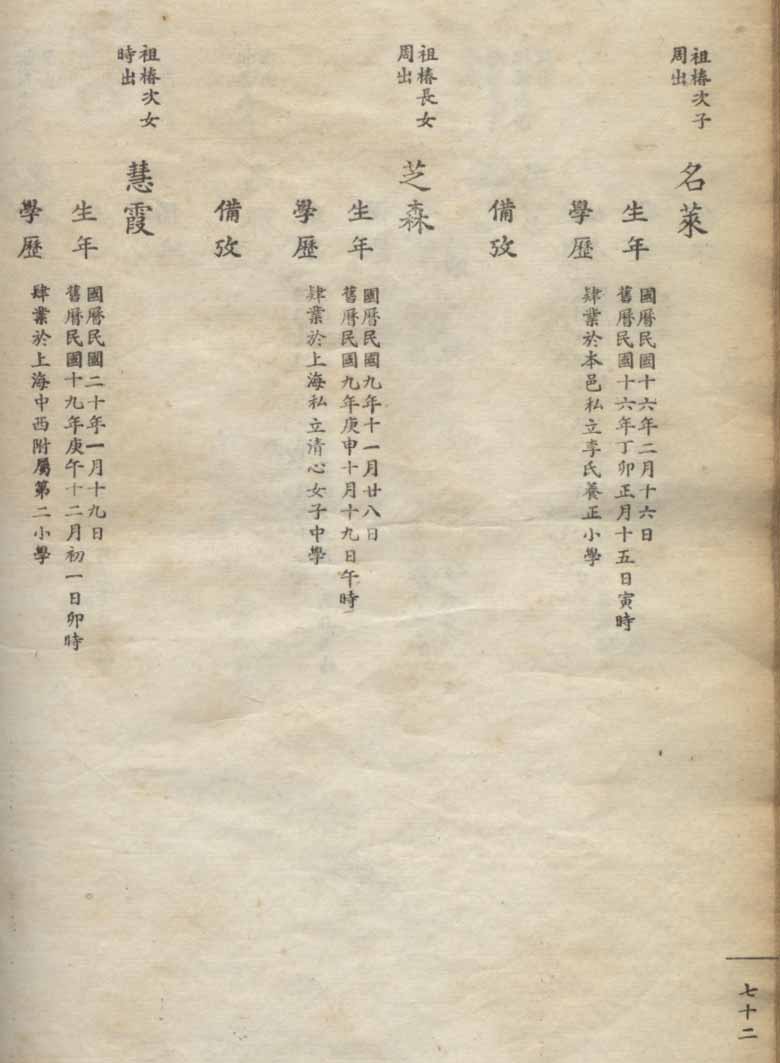 祖椿次子
周出
名萊
生年
國曆民國十六年二月十六日
舊曆民國十六年丁卯正月十五日寅時
學歷
肄業於本邑私立李氏養正小學
備攷
祖椿長女
周出
芝森
生年
國曆民國九年十一月廿八日
舊曆民國九年庚申十月十九日午時
學歷
肄業於上海私立清心女子中學
備攷
祖椿次女
時出
慧霞
生年
國曆民國二十年一月十九日
舊曆民國十九年庚午十二月初一日卯時
學歷
肄業於上海中西附屬第二小學
七十二